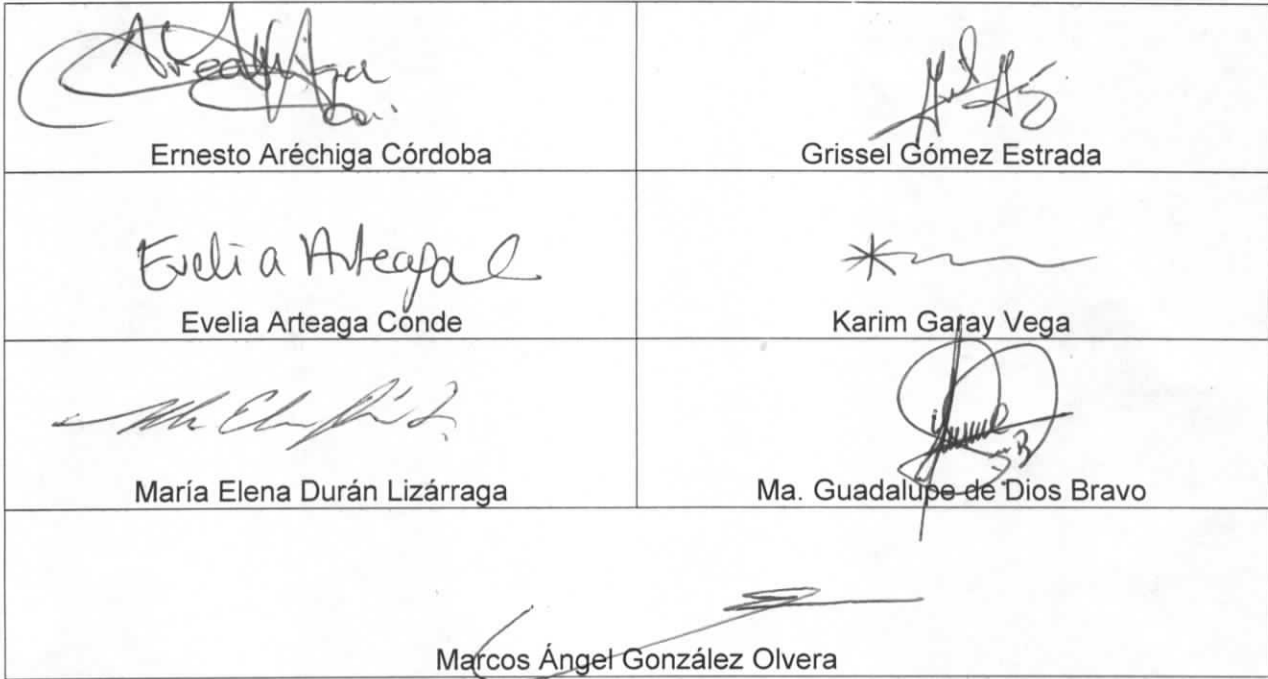 Ernesto Aréchiga Córdoba
Grissel Gómez Estrada
Evelia Arteaga C
Evelia Arteaga Conde
Karim Garay Vega
María Elena Durán Lizárraga
Ma. Guadalupe de Dios Bravo
Marcos Ángel González Olvera